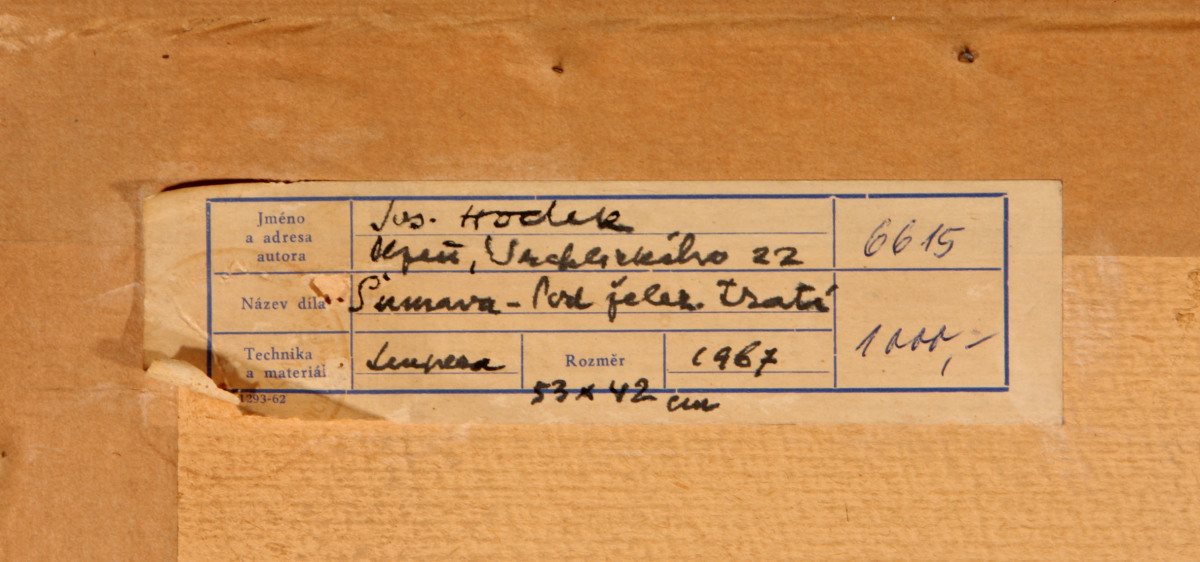 Jméno
a adresa
autora
Jos. Hodek
Plzeň, Vrchlického 22
6615
Název díla
Šumava - Pod želez. tratí
1000,-
Technika
a materiál
tempera
Rozměr
1967
53 x 42 cm
1293-62